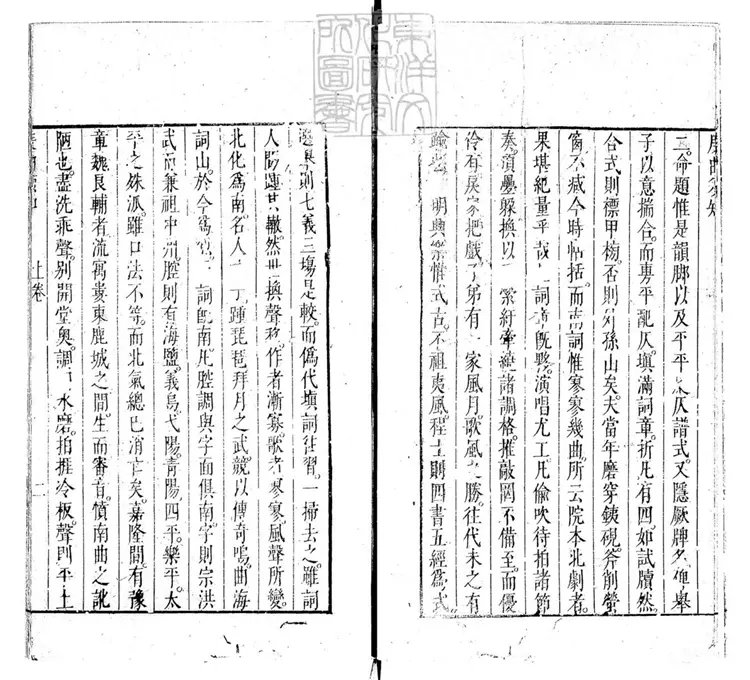 工。命題惟是韻脚以及平平仄譜式。又隱厥牌名。俾舉
子以意揣合。而專平亂仄填滿詞章。折凡有四。如試牘然
合式則標甲榜。否則外孫山矣。夫當年磨穿鐵硯。斧削螢
窗。不減今時帖括。而南詞惟寥寥幾曲。所云院本北劇者。
果堪紀量乎哉。詞章既夥。演唱尤工。凡偷吹待拍諸節
奏。頂疊躲換以縈紆牽繞諸調格。推敲罔不備至。而優
伶有戾家把戲。子弟有一家風月。歌風之勝。往代未之有
踰也。明興樂惟式古。不祖夷風。程士則四書五經爲式。
選舉則七義三塲是較。而僞代填詞往習。一掃去之。雖詞
人間踵其轍。然世換聲移。作者漸寡。歌者寥寥。風聲所變
北化爲南。名人才子。踵琵琶拜月之武。競以傳奇鳴。曲海
詞山。於今爲烈。詞既南。凡腔調與字面俱南。字則宗洪
武而兼祖中州。腔則有海鹽。義烏弋陽。青陽四平。樂平。太
平之殊派。雖口法不等。而北氣總已消亡矣。嘉隆間。有豫
章魏良輔者。流寓婁東鹿城之間。生而審音。憤南曲之訛
陋也。盡洗乖聲。别開堂奥。調水磨。拍捱冷板。聲則平上
上卷
二
東洋文化研究所圖書